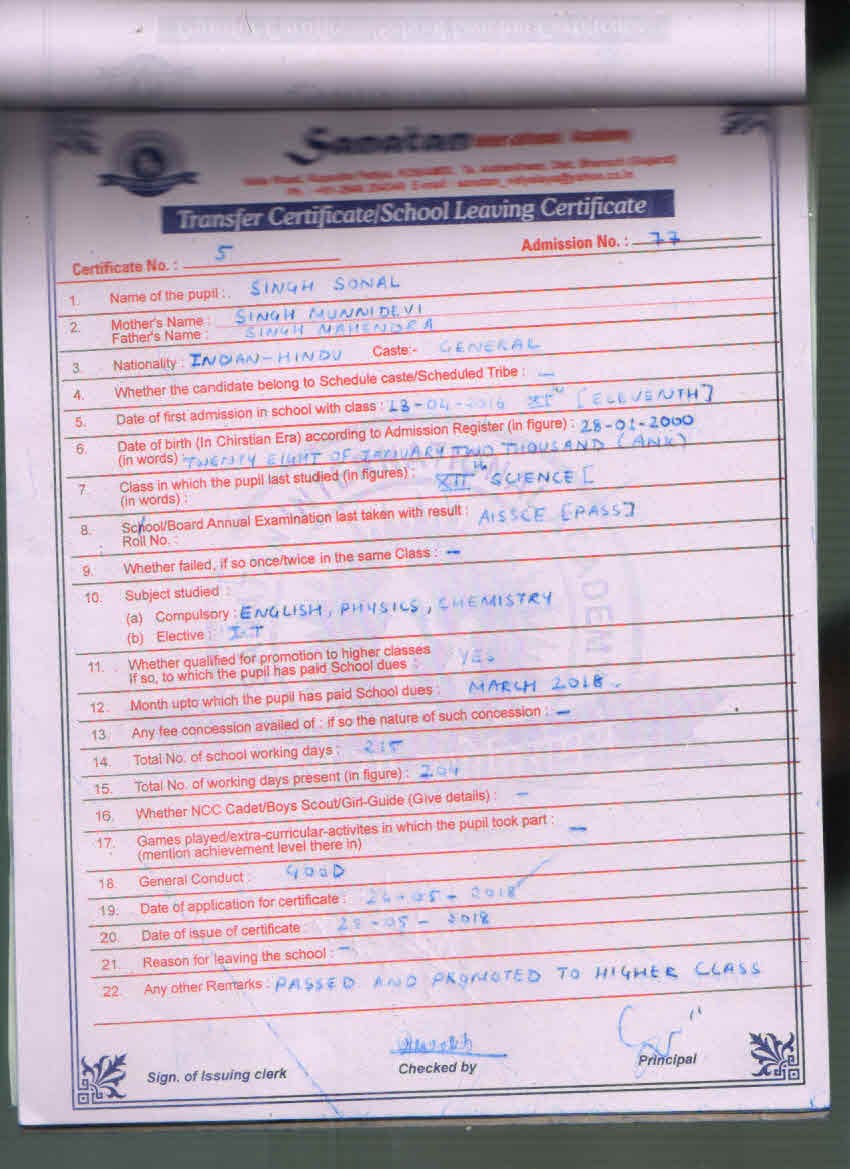 Sanatan International Academy
Transfer Certificate/School Leaving Certificate
Certificate No. : 5
Admission No. : 77
1. Name of the pupil : SINGH SONAL
2. Mother's Name : SINGH MUNNIDEVI
Father's Name : SINGH MAHENDRA
3. Nationality : INDIAN-HINDU Caste:- GENERAL
4. Whether the candidate belong to Schedule caste/Scheduled Tribe : —
5. Date of first admission in school with class : 18-04-2016 XIth [ELEVENTH]
6. Date of birth (In Chirstian Era) according to Admission Register (in figure) : 28-01-2000
(in words) TWENTY EIGHT OF JANUARY TWO THOUSAND (ANK)
7. Class in which the pupil last studied (in figures) : XIIth SCIENCE [
(in words) :
8. School/Board Annual Examination last taken with result : AISSCE [PASS]
Roll No. :
9. Whether failed, if so once/twice in the same Class : —
10. Subject studied :
(a) Compulsory : ENGLISH, PHYSICS, CHEMISTRY
(b) Elective : I.T
11. Whether qualified for promotion to higher classes
If so, to which the pupil has paid School dues : YES
12. Month upto which the pupil has paid School dues : MARCH 2018.
13. Any fee concession availed of : if so the nature of such concession : —
14. Total No. of school working days : 215
15. Total No. of working days present (in figure) : 204
16. Whether NCC Cadet/Boys Scout/Girl-Guide (Give details) : —
17. Games played/extra-curricular-activites in which the pupil took part : —
(mention achievement level there in)
18. General Conduct : GOOD
19. Date of application for certificate : 26-05-2018
20. Date of issue of certificate : 28-05-2018
21. Reason for leaving the school : —
22. Any other Remarks : PASSED AND PROMOTED TO HIGHER CLASS
Sign. of Issuing clerk
Checked by
Principal